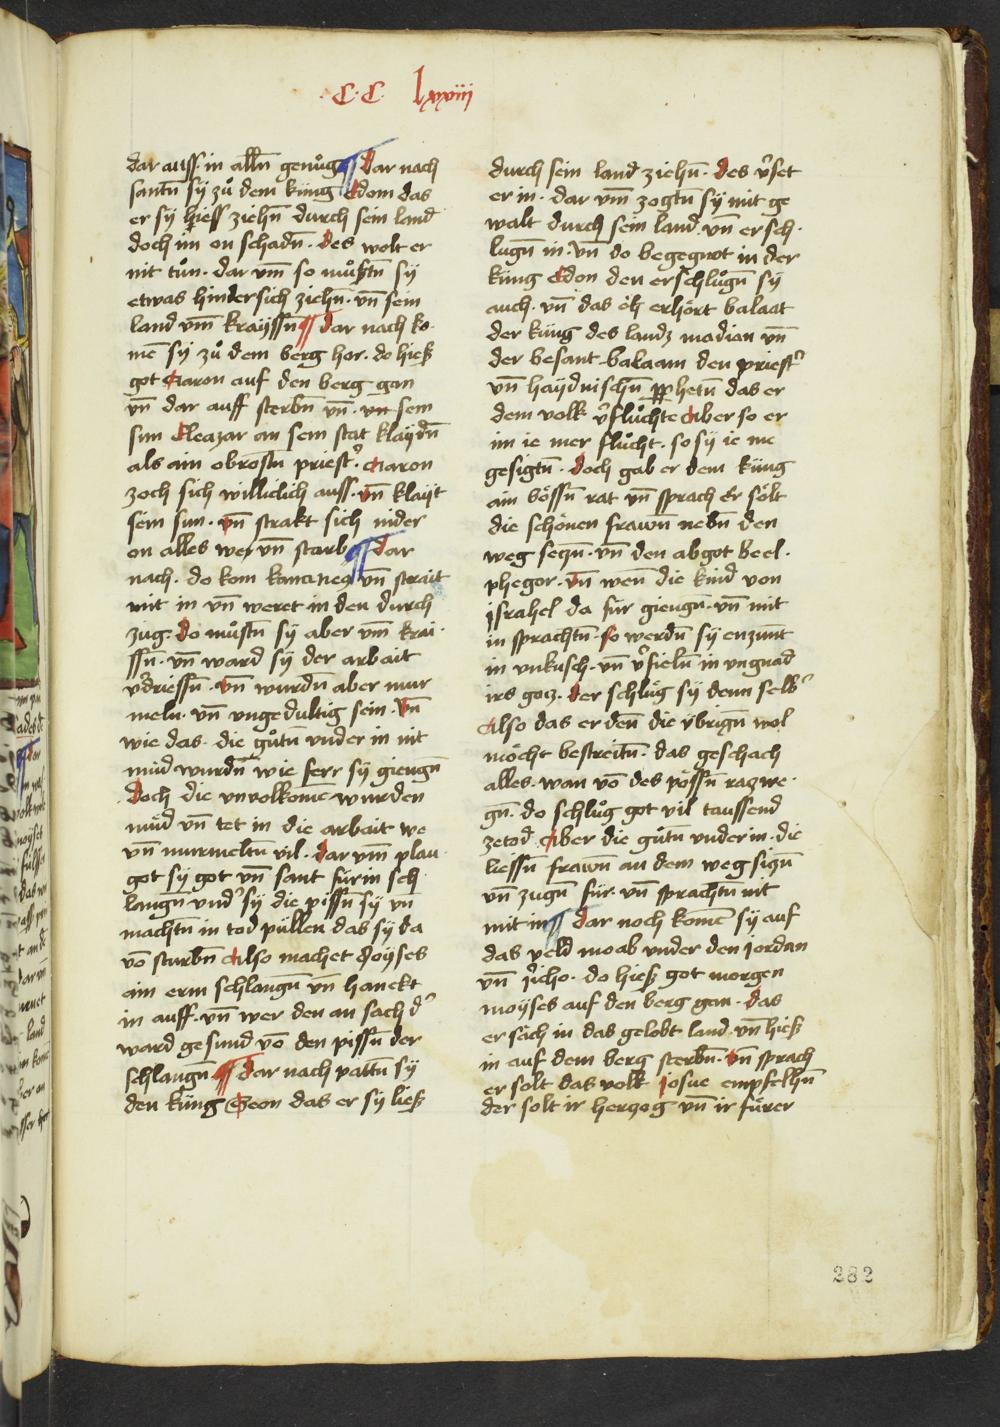 ·C·C· lxxviii
dar auss· in alln̄ genuͦg ¶ Dar nach
santn̄ sÿ zuͦ dem küng Edom das
er sÿ hiess ziehn̄ durch sein land
doch im on schadn̄· Des wolt er
nit tuͦn· dar vm̄ so muͦstn̄ sÿ
etwas hindersich ziehn̄· vn̄ sein
land vm̄ kraÿssn̄ ¶ Dar nach ko·
mē sÿ zuͦ dem berg hor· do hieß
got Aaron auf den berg gan
vn̄ dar auff sterbn̄ vn̄· vn̄ sem
sun Eleazar an sem stat klaÿdn̄
als ain obrostn priest᷑· Aaron
zoch sich willicḷich auss· vn̄ klaÿt
sem sun· Vn̄ strakt sich nider
on alles we· vn̄ starb ¶ Dar
nach· do kom kananeꝰ vn̄ strait
mit in vn̄ weret in den durch
zug· Do muͦstn̄ sÿ aber vm̄ krai·
ssn̄· vn̄ ward sÿ der arbait
v᷑driessn̄· Vn̄ wurdn̄ aber mur
meln· vn̄ vngedultig sein· Vn̄
wie das· die guͦtn vnder in nit
müd wurdn̄ wie ferr sÿ giengn̄
Doch die vnvolkomē wurden
müd vn̄ tet in die arbait we
vn̄ murmeltn̄ vil· Dar vm̄ plau
got sÿ got vn̄ sant fürin sch·
langn̄ vnd᷑ sÿ die pissn̄ sÿ vn̄
machtn̄ in tod püllen das sÿ da
vō sturbn̄ Also machet Moÿses
ain erin schlangn̄ vn̄ hanckt
in auff· vn̄ wer den an sach d᷑
ward gesund vō den pissn̄ der
schlangn̄ ¶ Dar nach pattn̄ sÿ
den küng Seon das er sÿ ließ
durch sein land ziehn̄· Des v᷑set
er in· dar vm̄ zogtn̄ sÿ mit ge
walt durch sein land· vn̄ ersch·
lugn̄ in· Vn̄ do begegnot in der
küng Edon den erschluͦgn̄ sÿ
auch· vn̄ das oͤh erhört balaat
der küng des landz madian vn̄
der besant balaam den priest᷑
vn̄ haÿdnischn̄ ꝓphetn̄ das er
dem volk v᷑fluͦchte Aber so er
im ie mer fluͦcht· so sÿ ie me
gesigtn̄· Doch gab er dem küng
ain bössn̄ rat vn̄ sprach Er sölt
die schönen frawn̄ nebn̄ den
weg seczn̄· vn̄ den abgot beel·
phegor· Vn̄ wen̄ die kind von
jsrahel da für giengn̄· vn̄ mit
in sprachtn̄· so werdn̄ sÿ enzünt
in vnkusch· vn̄ v᷑fieln̄ in vngnad
irs gocz· Der schluͦg sÿ denn selb᷑
Also das er den̄ die v̈brign̄ wol
möcht bestreitn̄· das geschach
alles· wan vō des pössn̄ racz we·
gn̄· do schluͦg got vil taussend
zetod Aber die guͤtn vnder in· die
liessn̄ frawn̄ an dem weg siczn̄
vn̄ zugn̄ für· vn̄ sprachtn nit
mit in ¶ Dar noch komē sÿ auf
das veld moab vnder den jordan
vn̄ j᷑icho· do hieß got morgen
moÿses auf den berg gan· Das
er säch in das gelobt land· vn̄ hieß
in auf dem berg sterbn̄· Vn̄ sprach
er solt das volk Josue empfelhn̄
der solt ir herczog vn̄ ir fürer
282